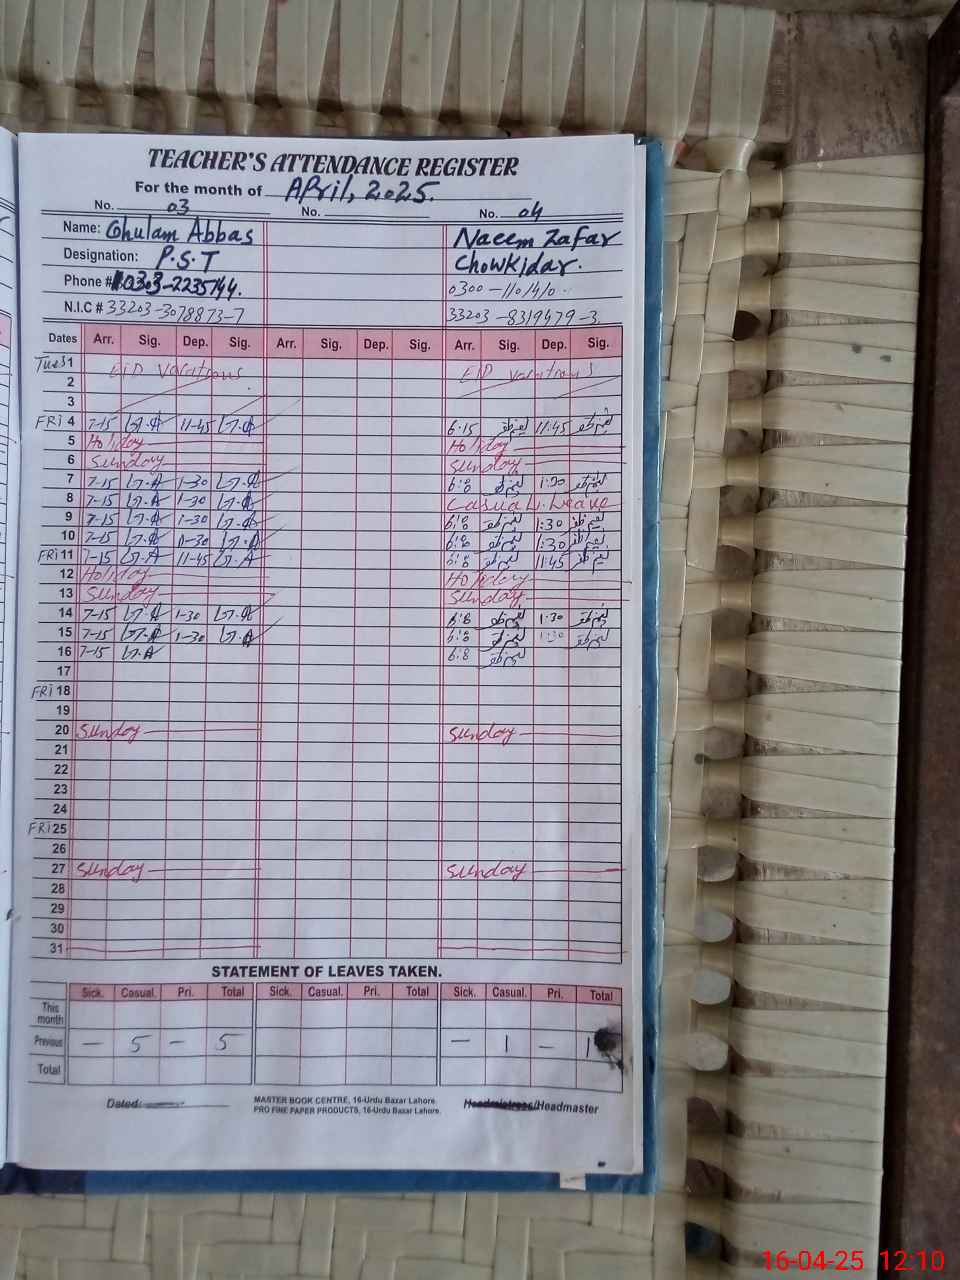 TEACHER'S ATTENDANCE REGISTER
For the month of April, 2025.
No. 03 No. No. 04
Name: Ghulam Abbas Naeem Zafar
Designation: P.S.T Chowkidar.
Phone # 0303-2235744. 0300-
N.I.C # 33203-3078873-7 33203-8319479-3
Dates Arr. Sig. Dep. Sig. Arr. Sig. Dep. Sig. Arr. Sig. Dep. Sig.
Tues 1 EID vacations EID vacations
2
3
FRI 4 7-15 G.A 11-45 G.A 6:15 نعیم ظفر 11:45 نعیم ظفر
5 Holiday Holiday
6 Sunday Sunday
7 7-15 G.A 1-30 G.A 6:8 نعیم ظفر 1:30 نعیم ظفر
8 7-15 G.A 1-30 G.A Casual Leave
9 7-15 G.A 1-30 G.A 6:8 نعیم ظفر 1:30 نعیم ظفر
10 7-15 G.A 1-30 G.A 6:8 نعیم ظفر 1:30 نعیم ظفر
FRI 11 7-15 G.A 11-45 G.A 6:8 نعیم ظفر 11:45 نعیم ظفر
12 Holiday Holiday
13 Sunday Sunday
14 7-15 G.A 1-30 G.A 6:8 نعیم ظفر 1:30 نعیم ظفر
15 7-15 G.A 1-30 G.A 6:8 نعیم ظفر 1:30 نعیم ظفر
16 7-15 G.A 6:8 نعیم ظفر
17
FRI 18
19
20 Sunday Sunday
21
22
23
24
FRI 25
26
27 Sunday Sunday
28
29
30
31
STATEMENT OF LEAVES TAKEN.
Sick. Casual. Pri. Total Sick. Casual. Pri. Total Sick. Casual. Pri. Total
This month
Previous — 5 — 5 — 1 — 1
Total
Dated: MASTER BOOK CENTRE, 16-Urdu Bazar Lahore. Headmistress/Headmaster
PRO FINE PAPER PRODUCTS, 16-Urdu Bazar Lahore.
16-04-25 12:10